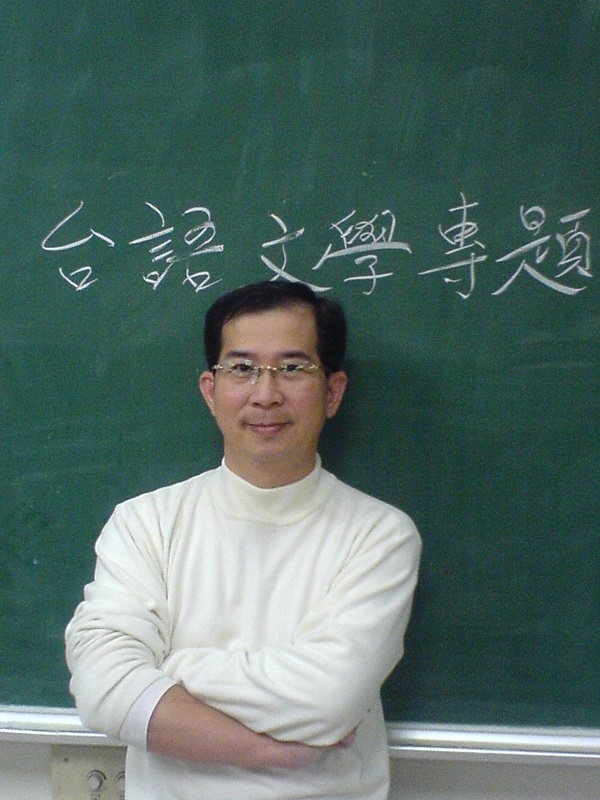 台語文學專題